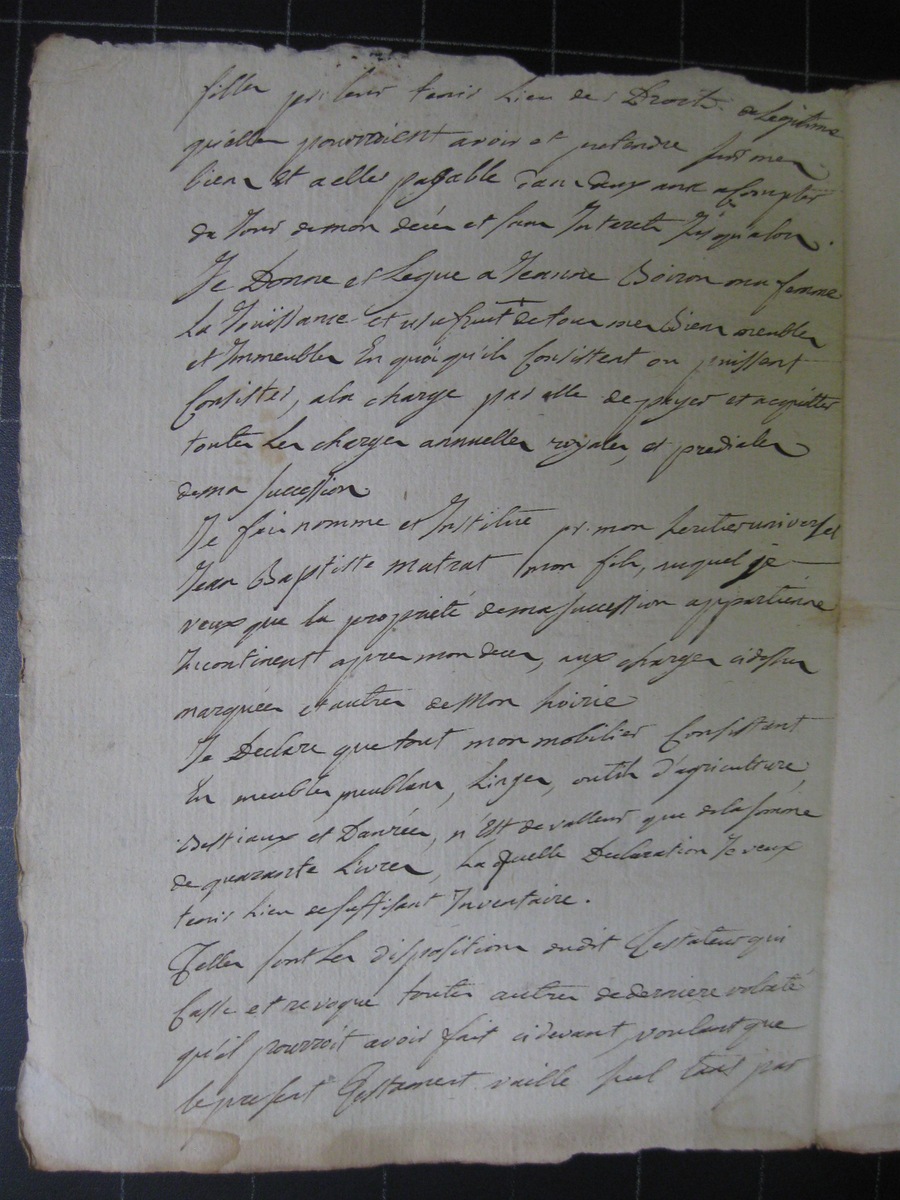 filles pr. leur tenir Lieu de Droits de Legitime
qu'elles pourroient avoir et pretendre sur mes
biens Et a elles payable dans deux ans a Compter
du Jour de mon décès et sans Interets Jusqu'alors.
Je Donne et Legue a Jeanne Boiron ma femme
La Jouissance et usufruit de tous mes Biens meubles
et Immeubles En quoi qu'ils Consistent ou puissent
Consister, a la charge par elle de payer et acquitter
toutes Les charges annuelles royales, et prediales
de ma succession
Je fais nomme et Institue pr. mon heritier universel
Jean Baptiste matrat mon fils, auquel je
veux que la propriété de ma succession appartienne
Incontinent apres mon deces, aux charges cidessus
marquées et autres de Mon hoirie
Je Declare que tout mon mobilier Consistant
En meubles meublans, Linges, outils d'agriculture,
Bestiaux et Danrées, n'Est de valleur que de la somme
de quarante Livres, La quelle Declaration Je veux
tenir Lieu de suffisant Inventaire.
Telles sont Les dispositions dudit Testateur qui
Casse et revoque toutes autres de derniere volonté
qu'il pourroit avoir fait cidevant, voulant que
le present Testament vaille seul tant par